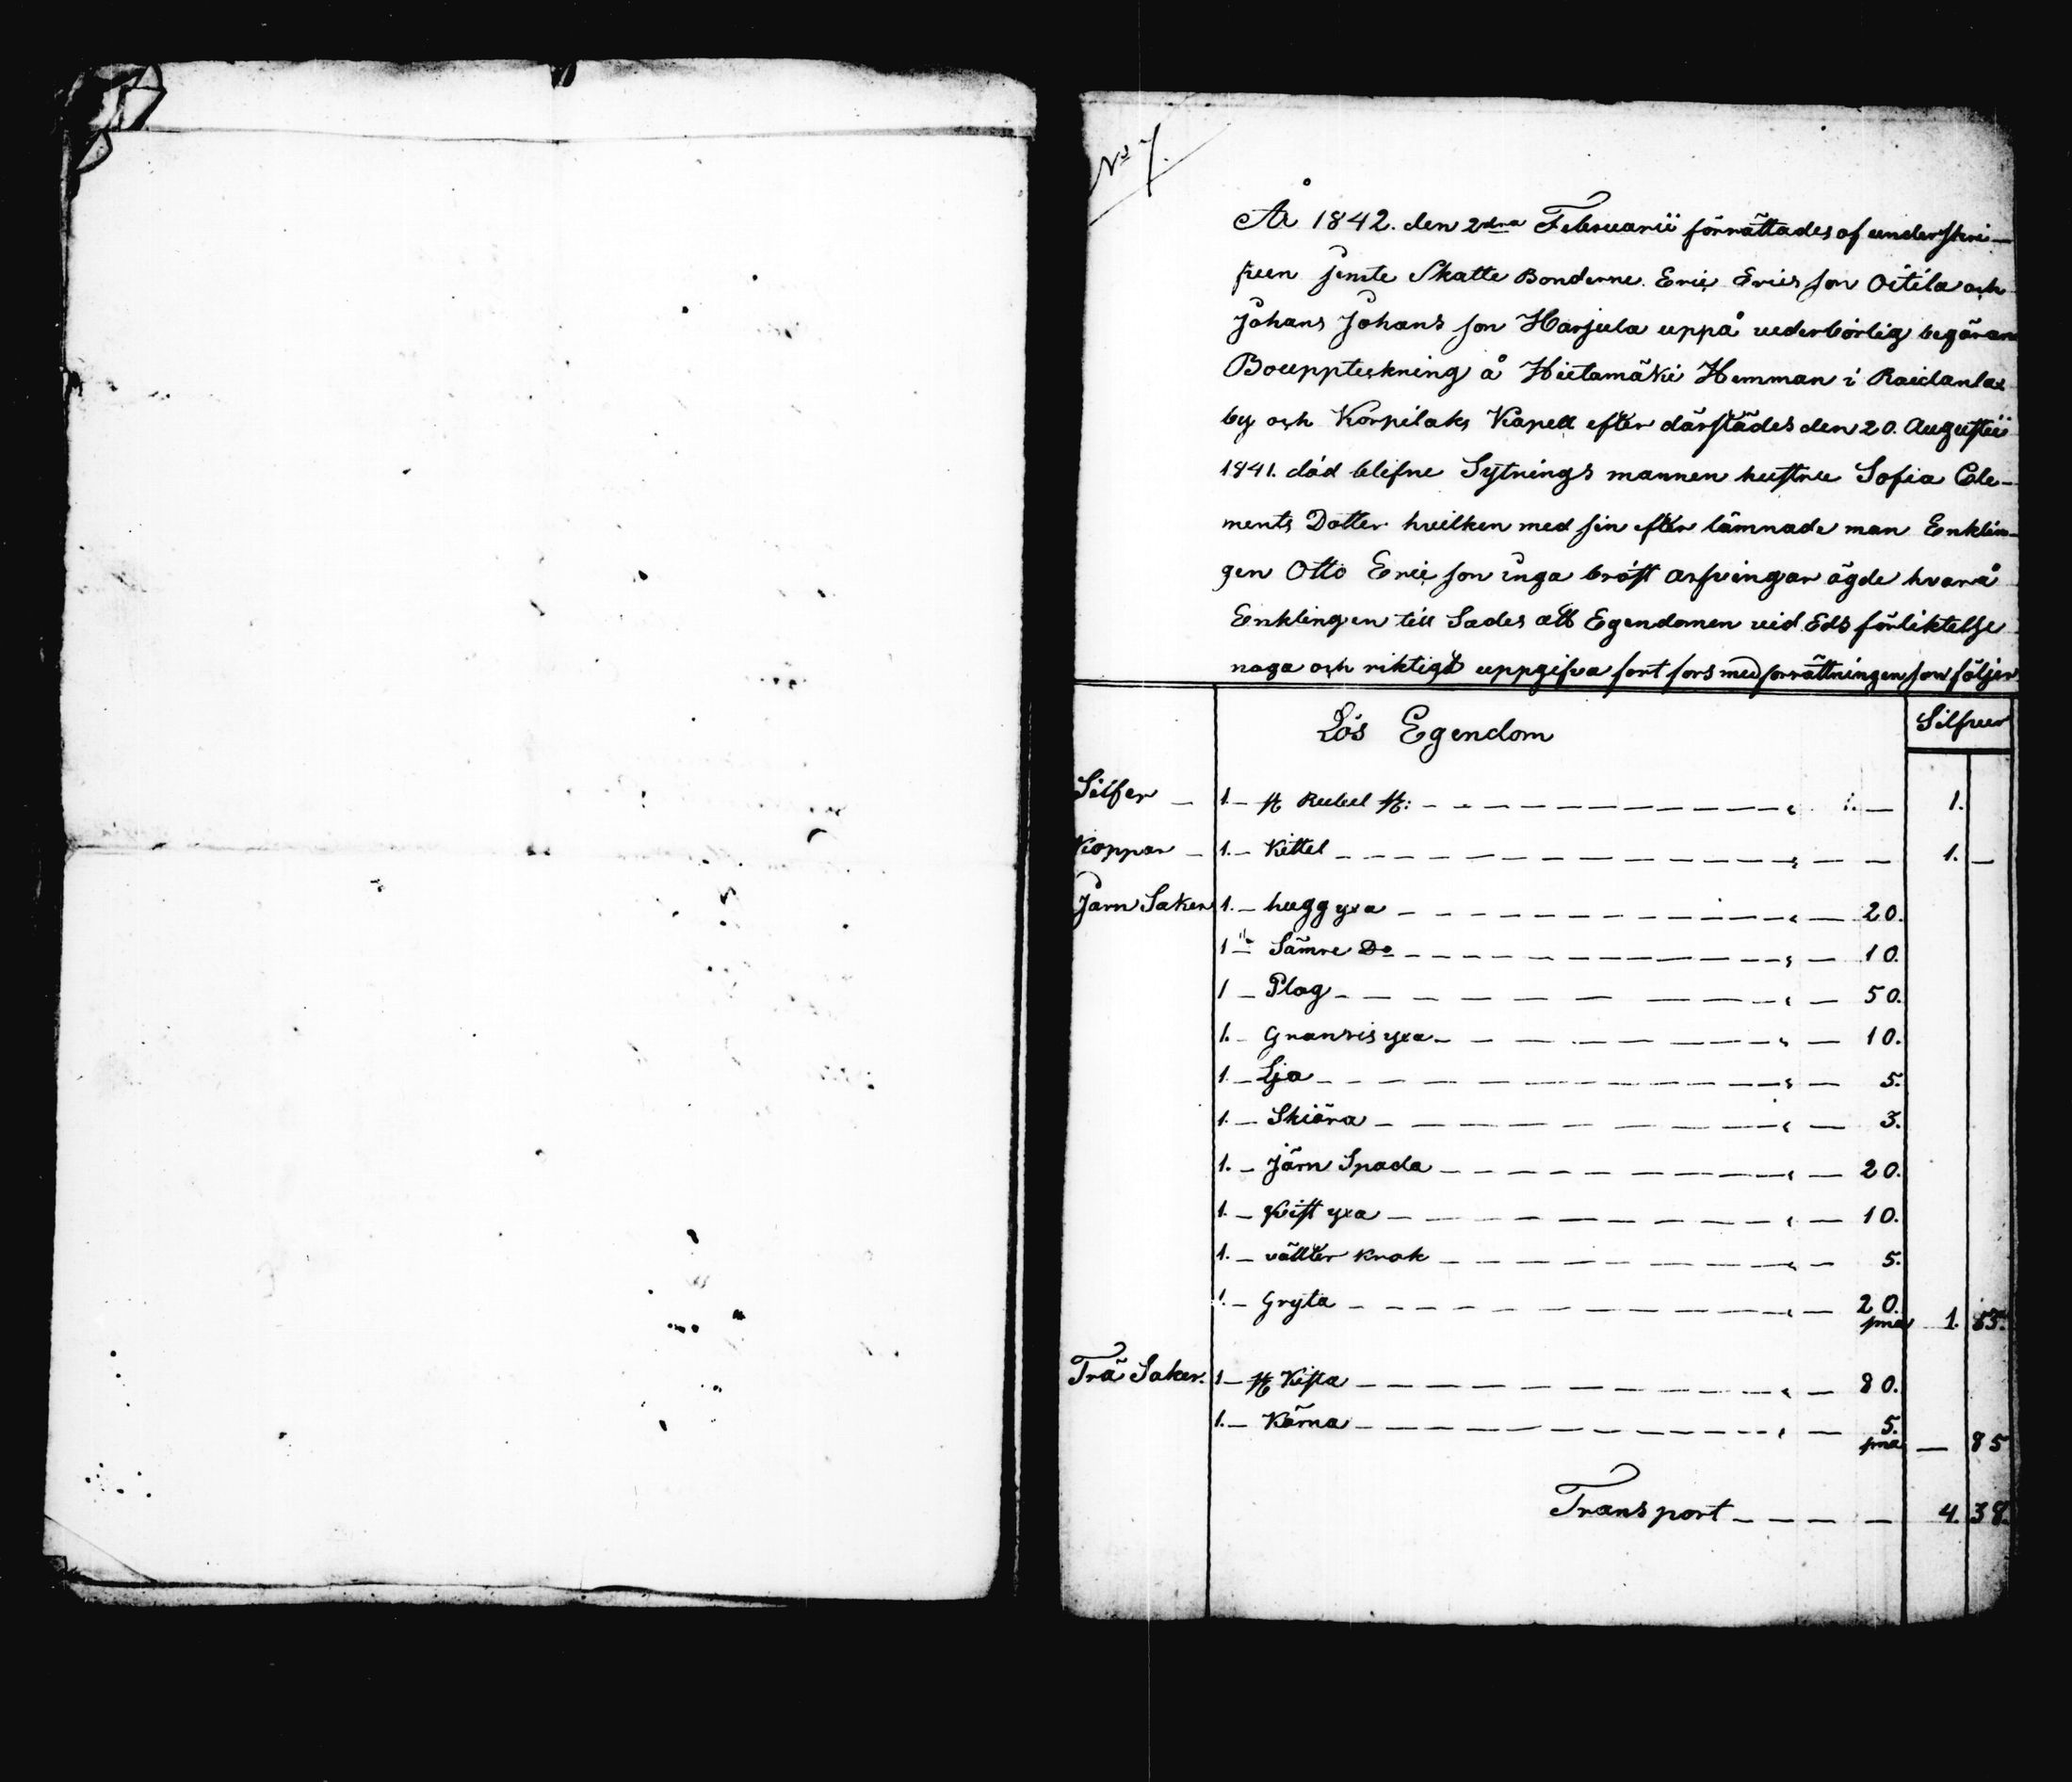 No 7.
År 1842. den 2dra Februarii förrättades af underskri-
fven jemte Skatte Bonderne Eric Erics son Oitila och
Johans Johans son Harjula uppå vederbörlig begäran
Bouppteckning å Hietamäki Hemman i Raidanlax
by och Korpilaks Kapell efter därstädes den 20. Augustii
1841. död blifne Sytnings mannen hustru Sofia Cle-
ments Dotter hvilken med sin efter lämnade man Enklin-
gen Otto Eric son inga bröst arfvingar ägde hvarå
Enklingen till Sades att Egendomen vid Eds förliktelse
noga och riktigt uppgifva fort fors med förrättningen som följer
Lös Egendom Silfver
Silfer 1. st Rubel st: 1. 1.
Koppar 1. Kittel 1. —
Järn Saker 1. huggyxa 20.
1 Sämre Do 10.
1 Plog 50.
1. Granris yxa 10.
1 Lja 5.
1. Skiära 3.
1. Järn Spada 20.
1. Kvist yxa 10.
1. vältter krok 5.
1. Gryta 20.
sma 1. 53.
Trä Saker. 1 st Kista 80.
1. Kärna 5.
sma — 85
Transport 4. 38.